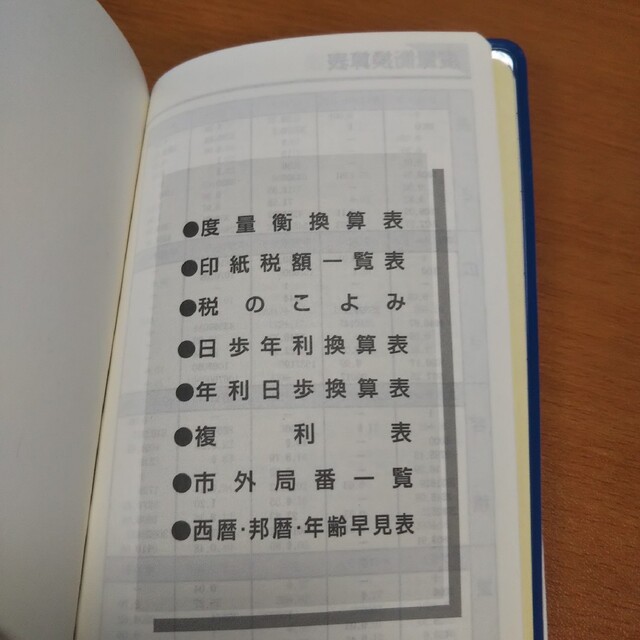 ●度量衡換算表
●印紙税額一覧表
●税のこよみ
●日歩年利換算表
●年利日歩換算表
●複利表
●市外局番一覧
●西暦・邦暦・年齢早見表